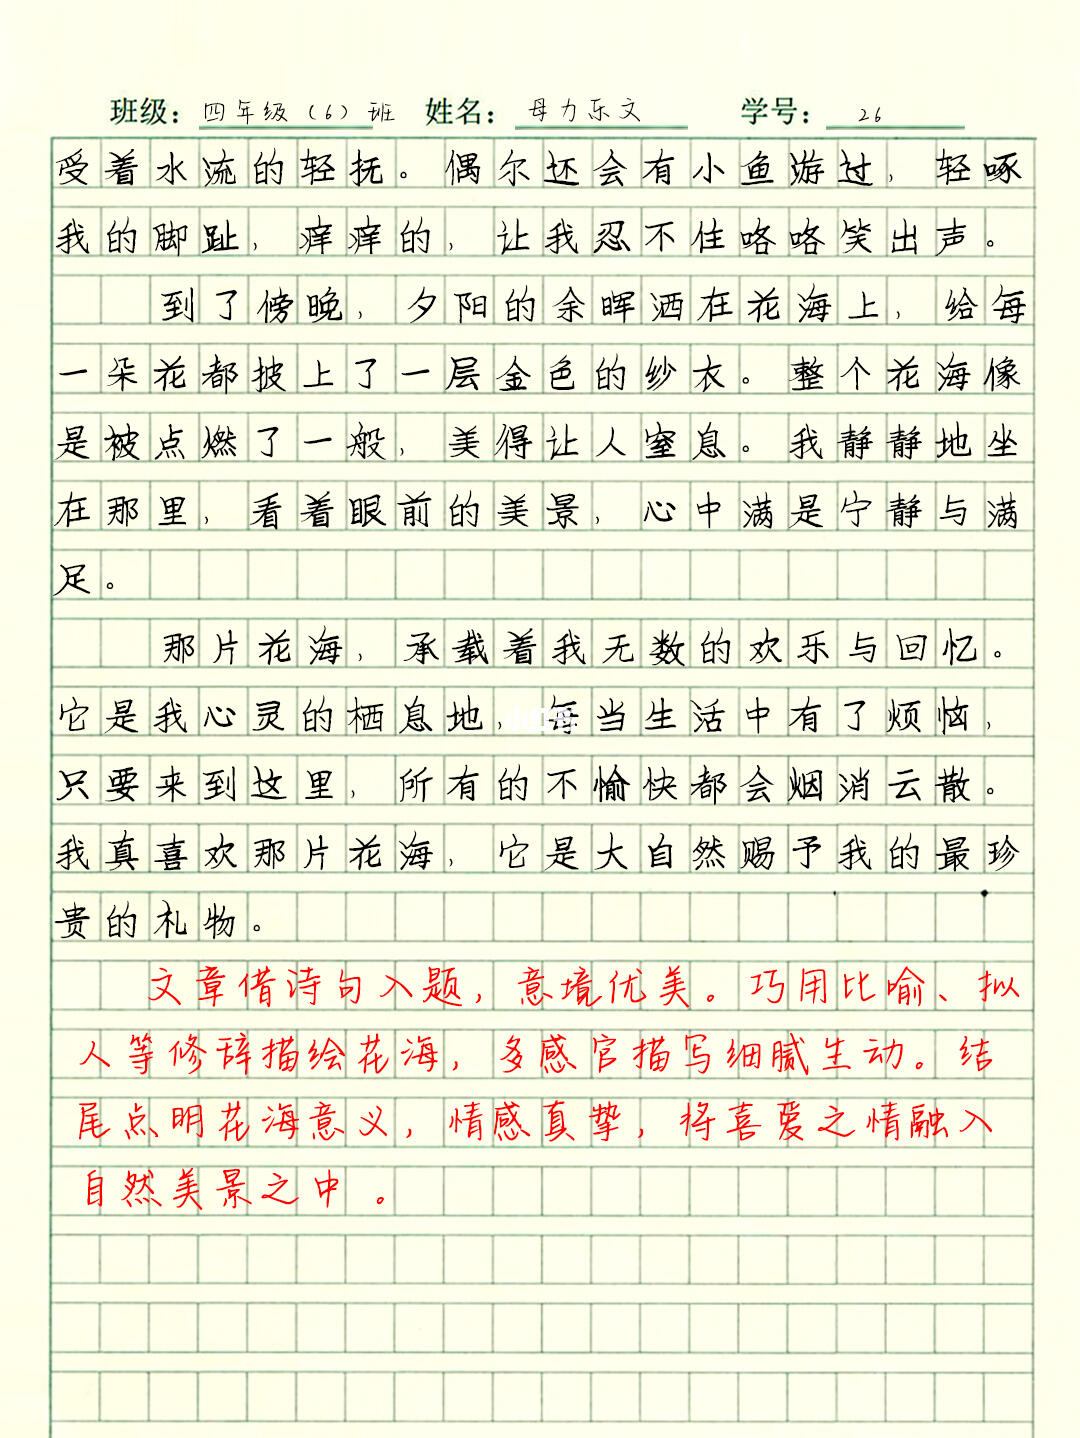 班级：四年级（6）班 姓名：母力乐文 学号：26
受着水流的轻抚。偶尔还会有小鱼游过，轻啄
我的脚趾，痒痒的，让我忍不住咯咯笑出声。
到了傍晚，夕阳的余晖洒在花海上，给每
一朵花都披上了一层金色的纱衣。整个花海像
是被点燃了一般，美得让人窒息。我静静地坐
在那里，看着眼前的美景，心中满是宁静与满
足。
那片花海，承载着我无数的欢乐与回忆。
它是我心灵的栖息地，每当生活中有了烦恼，
只要来到这里，所有的不愉快都会烟消云散。
我真喜欢那片花海，它是大自然赐予我的最珍
贵的礼物。
文章借诗句入题，意境优美。巧用比喻、拟
人等修辞描绘花海，多感官描写细腻生动。结
尾点明花海意义，情感真挚，将喜爱之情融入
自然美景之中。